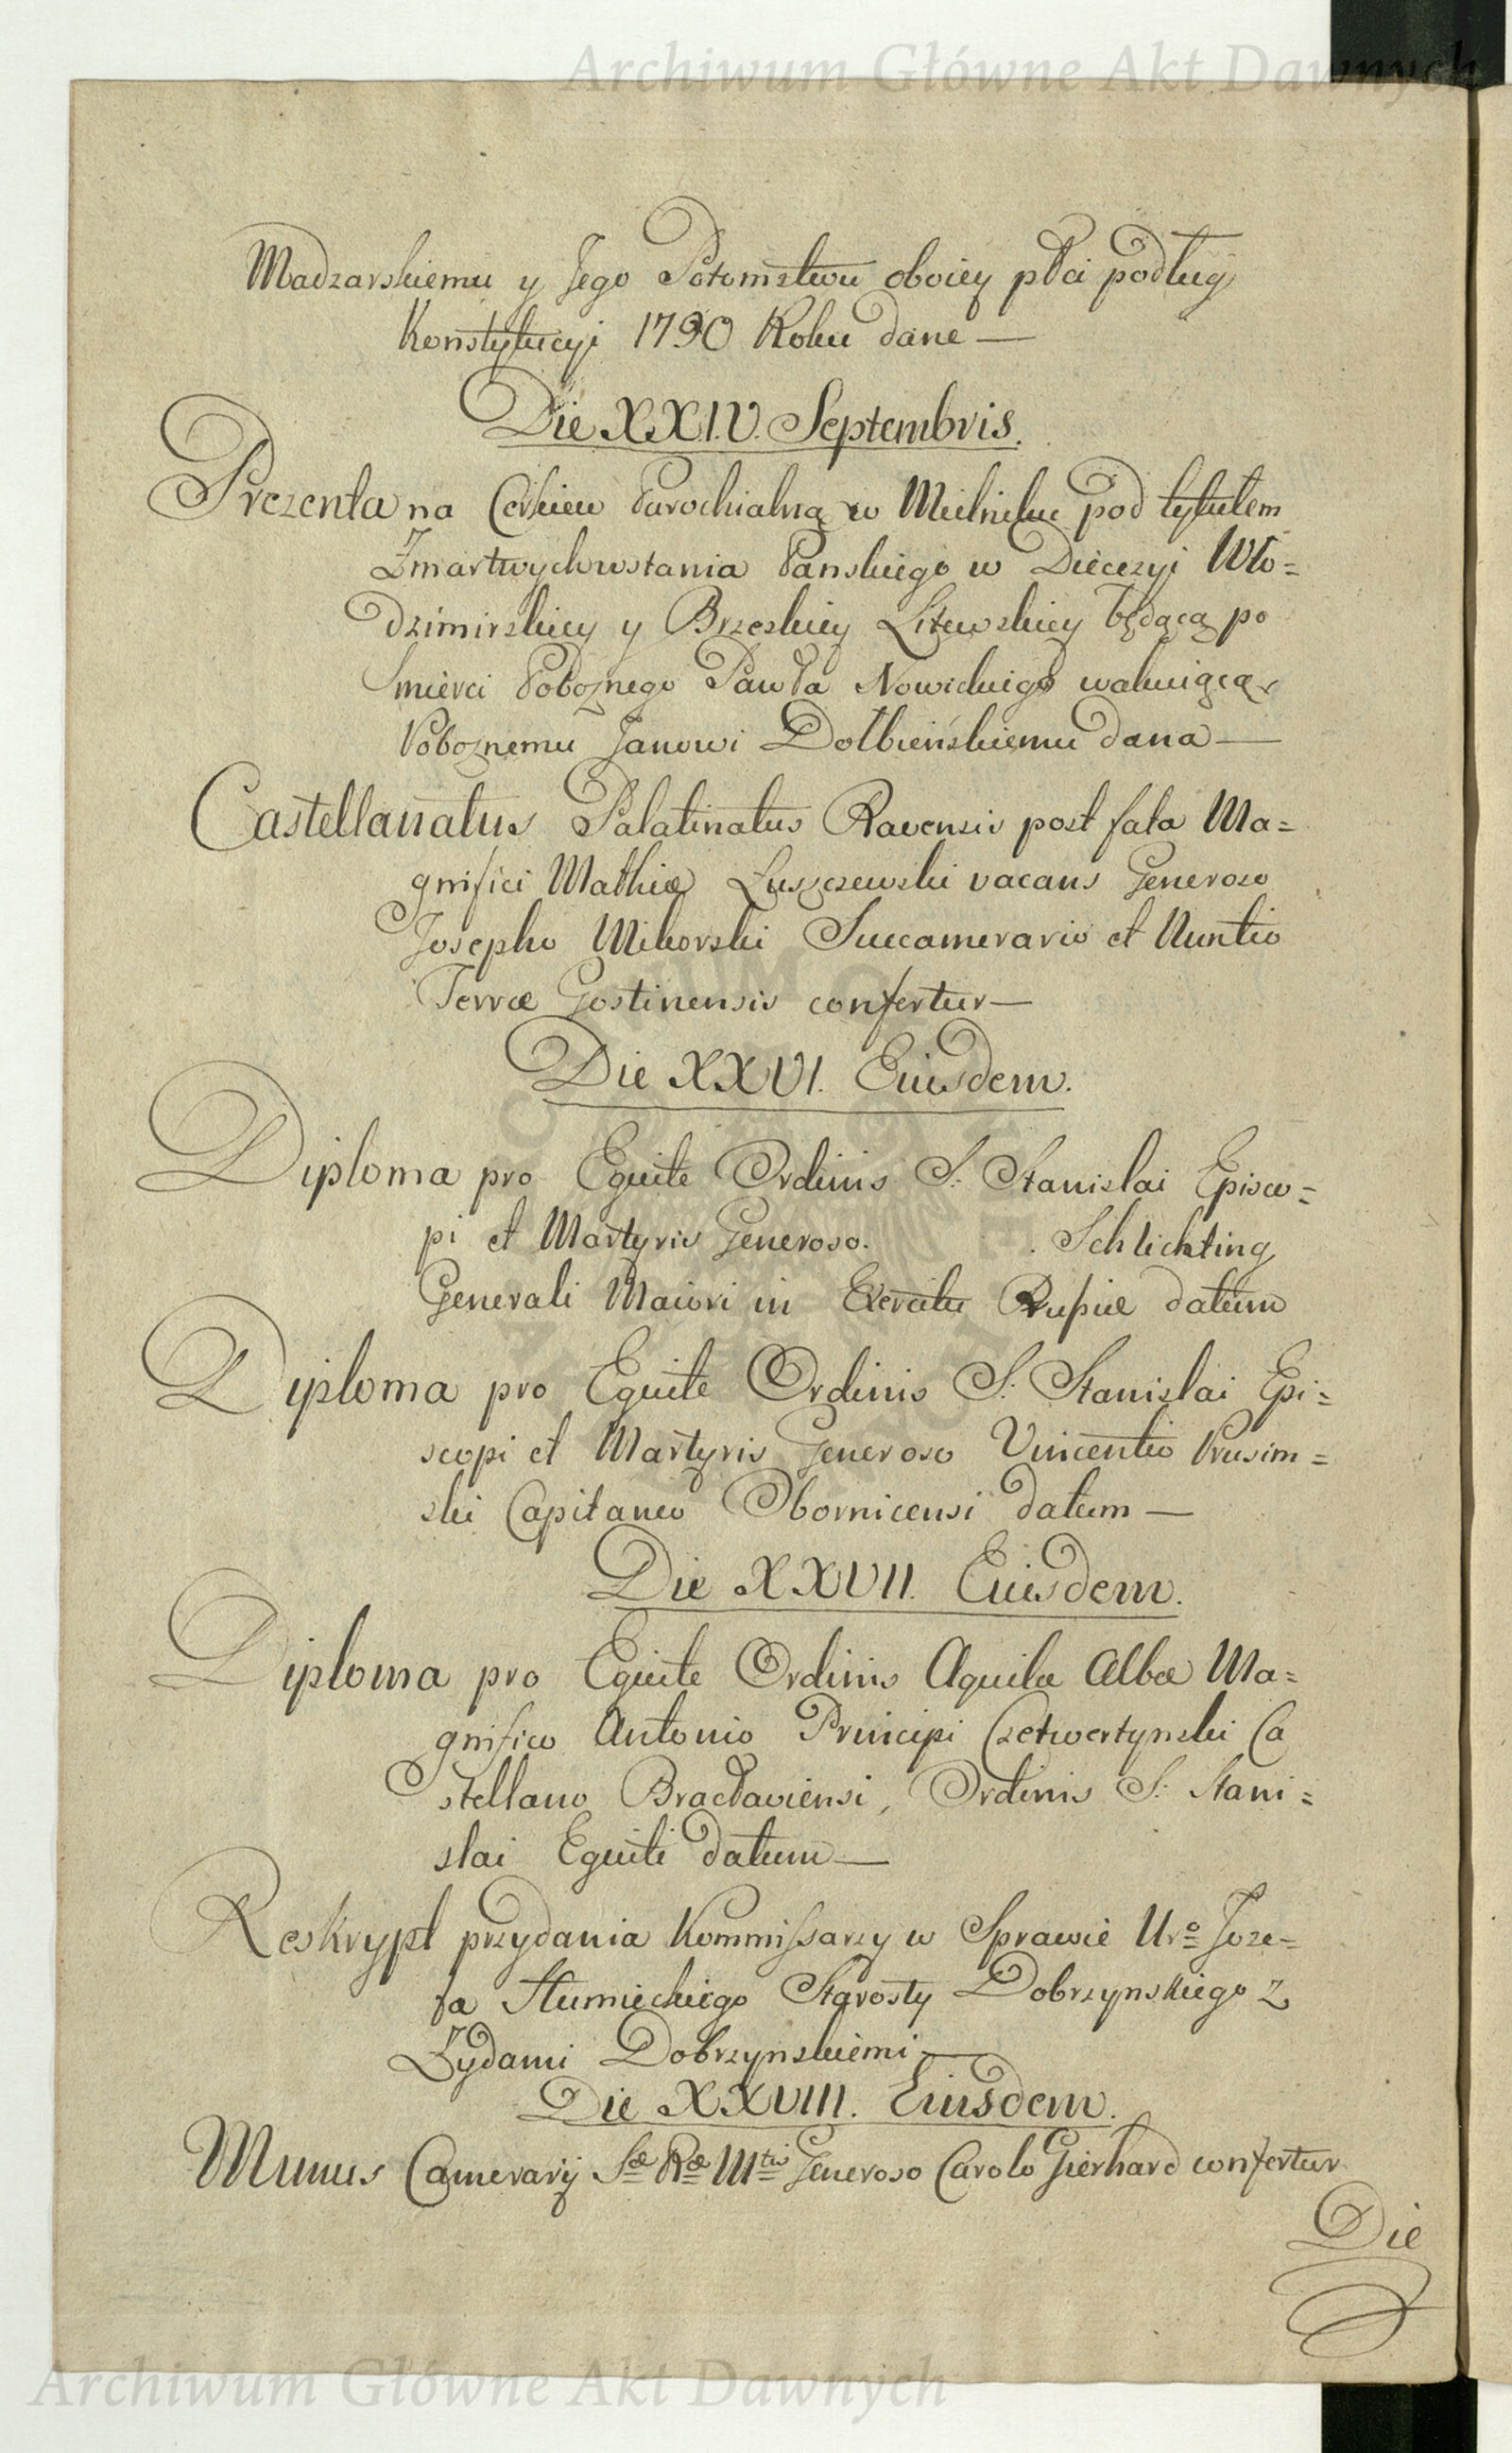 Archiwum Główne Akt Dawnych
Madzarskiemu y Jego Potomstwu oboiey płci podług
Konstytucyi 1790 Roku dane —
Die XXIV. Septembris.
Prezenta na Cerkiew Parochialną w Mielniku pod tytułem
Zmartwychwstania Panskiego w Diecezyi Wło=
dzimirskiey y Brzeskiey Litewskiey będącą po
Smierci Poboznego Pawła Nowickiego wakuiącą,
Poboznemu Janowi Dołbieńskiemu dana —
Castellanatus Palatinatus Ravensis post fata Ma=
gnifici Mathiæ Łuszczewski vacans Generoso
Josepho Mikorski Succamerario et Nuntio
Terræ Gostinensis confertur —
Die XXVI. Eiusdem.
Diploma pro Equite Ordinis S: Stanislai Episco=
pi et Martyris Generoso. . Schlichting
Generali Maiori in Exercitu Rußiæ datum
Diploma pro Equite Ordinis S: Stanislai Epi=
scopi et Martyris Generoso Vincentio Prusim=
ski Capitaneo Obornicensi datum —
Die XXVII. Eiusdem.
Diploma pro Equite Ordinis Aquilæ Albæ Ma=
gnifico Antonio Principi Czetwertynski Ca
stellano Bracłaviensi, Ordinis S: Stani=
slai Equiti datum —
Reskrypt przydania Kommißarzy w Sprawie Uro Joze=
fa Humieckiego Starosty Dobrzynskiego z
Zydami Dobrzynskiemi —
Die XXVIII. Eiusdem.
Munus Camerarij Sæ Ræ Mtis Generoso Carolo Gierhard confertur
Die
Archiwum Główne Akt Dawnych